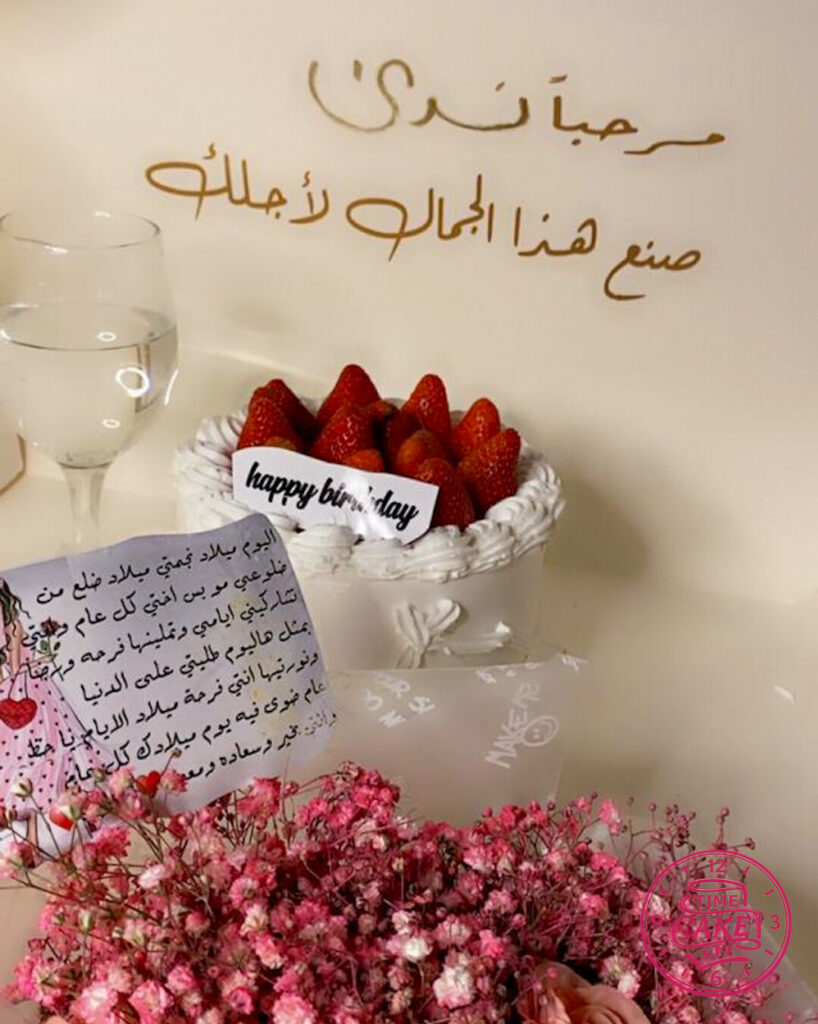 مرحباً ندى
صنع هذا الجمال لأجلك
happy birthday
اليوم ميلاد نجمتي ميلاد ضلع من
ضلوعي مو بس اختي كل عام وانتي
تشاركيني ايامي وتملينها فرحه ورضا
بمثل هاليوم طليتي على الدنيا
ونورتيها انتي فرحة ميلاد الايام يا حظ
عام ضوى فيه يوم ميلادك كل عام
وانتي بخير وسعاده
MAKE
12
TIME
CAKE
9 3
6